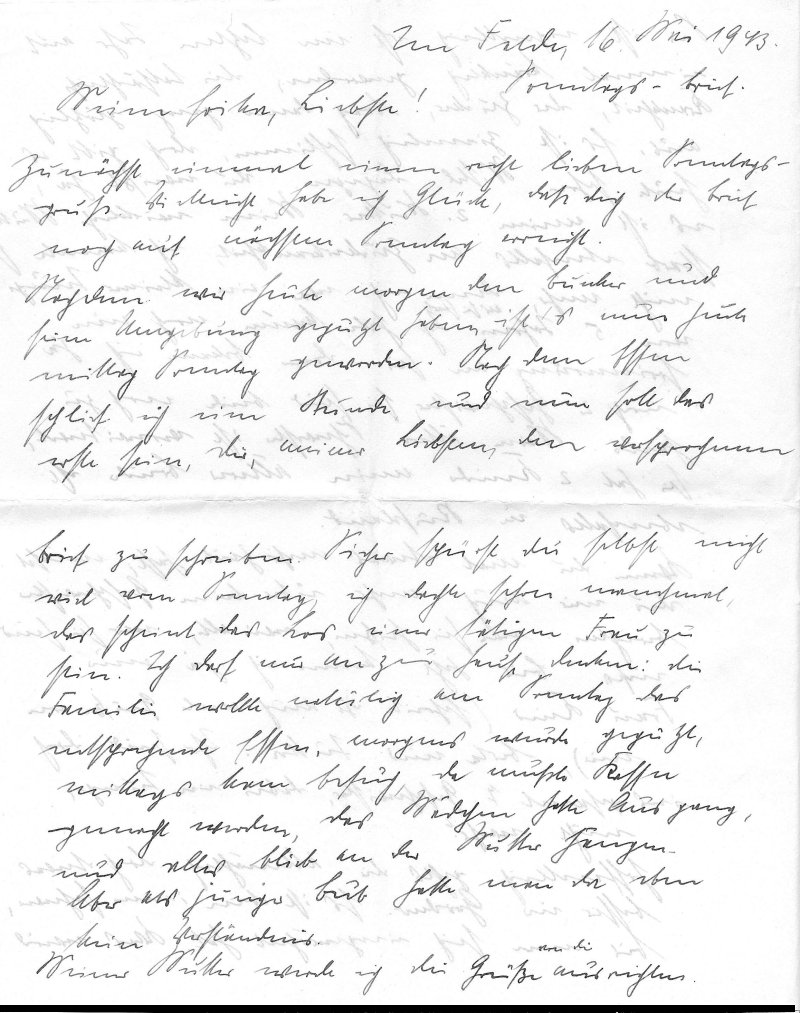 Im Felde, 16. Mai 1943.
Sonntags-brief.
Meine Erika, Liebste!
Zunächst einmal einen recht lieben Sonntags-
gruß. Vielleicht habe ich Glück, daß dich der Brief
noch auf nächsten Sonntag erreicht.
Nachdem wir heute morgen den Bunker und
seine Umgebung geputzt haben, ist's nun heute
mittag Sonntag geworden. Nach dem Essen
schlief ich eine Stunde und nun soll das
erste sein, dir, meiner Liebsten, den versprochenen
Brief zu schreiben. Sicher spürst du selbst nicht
viel vom Sonntag, ich dachte schon manchmal,
das scheint das Los einer tätigen Frau zu
sein. Ich darf nur an zu Hause denken: die
Familie wollte natürlich am Sonntag das
entsprechende Essen, morgens wurde geputzt,
mittags kam Besuch, da mußte Kaffee
gemacht werden, das Mädchen hatte Ausgang,
und alles blieb an der Mutter hängen.
Aber als junger Bub hatte man da eben
kein Verständnis.
Meiner Mutter werde ich die Grüße von dir ausrichten.